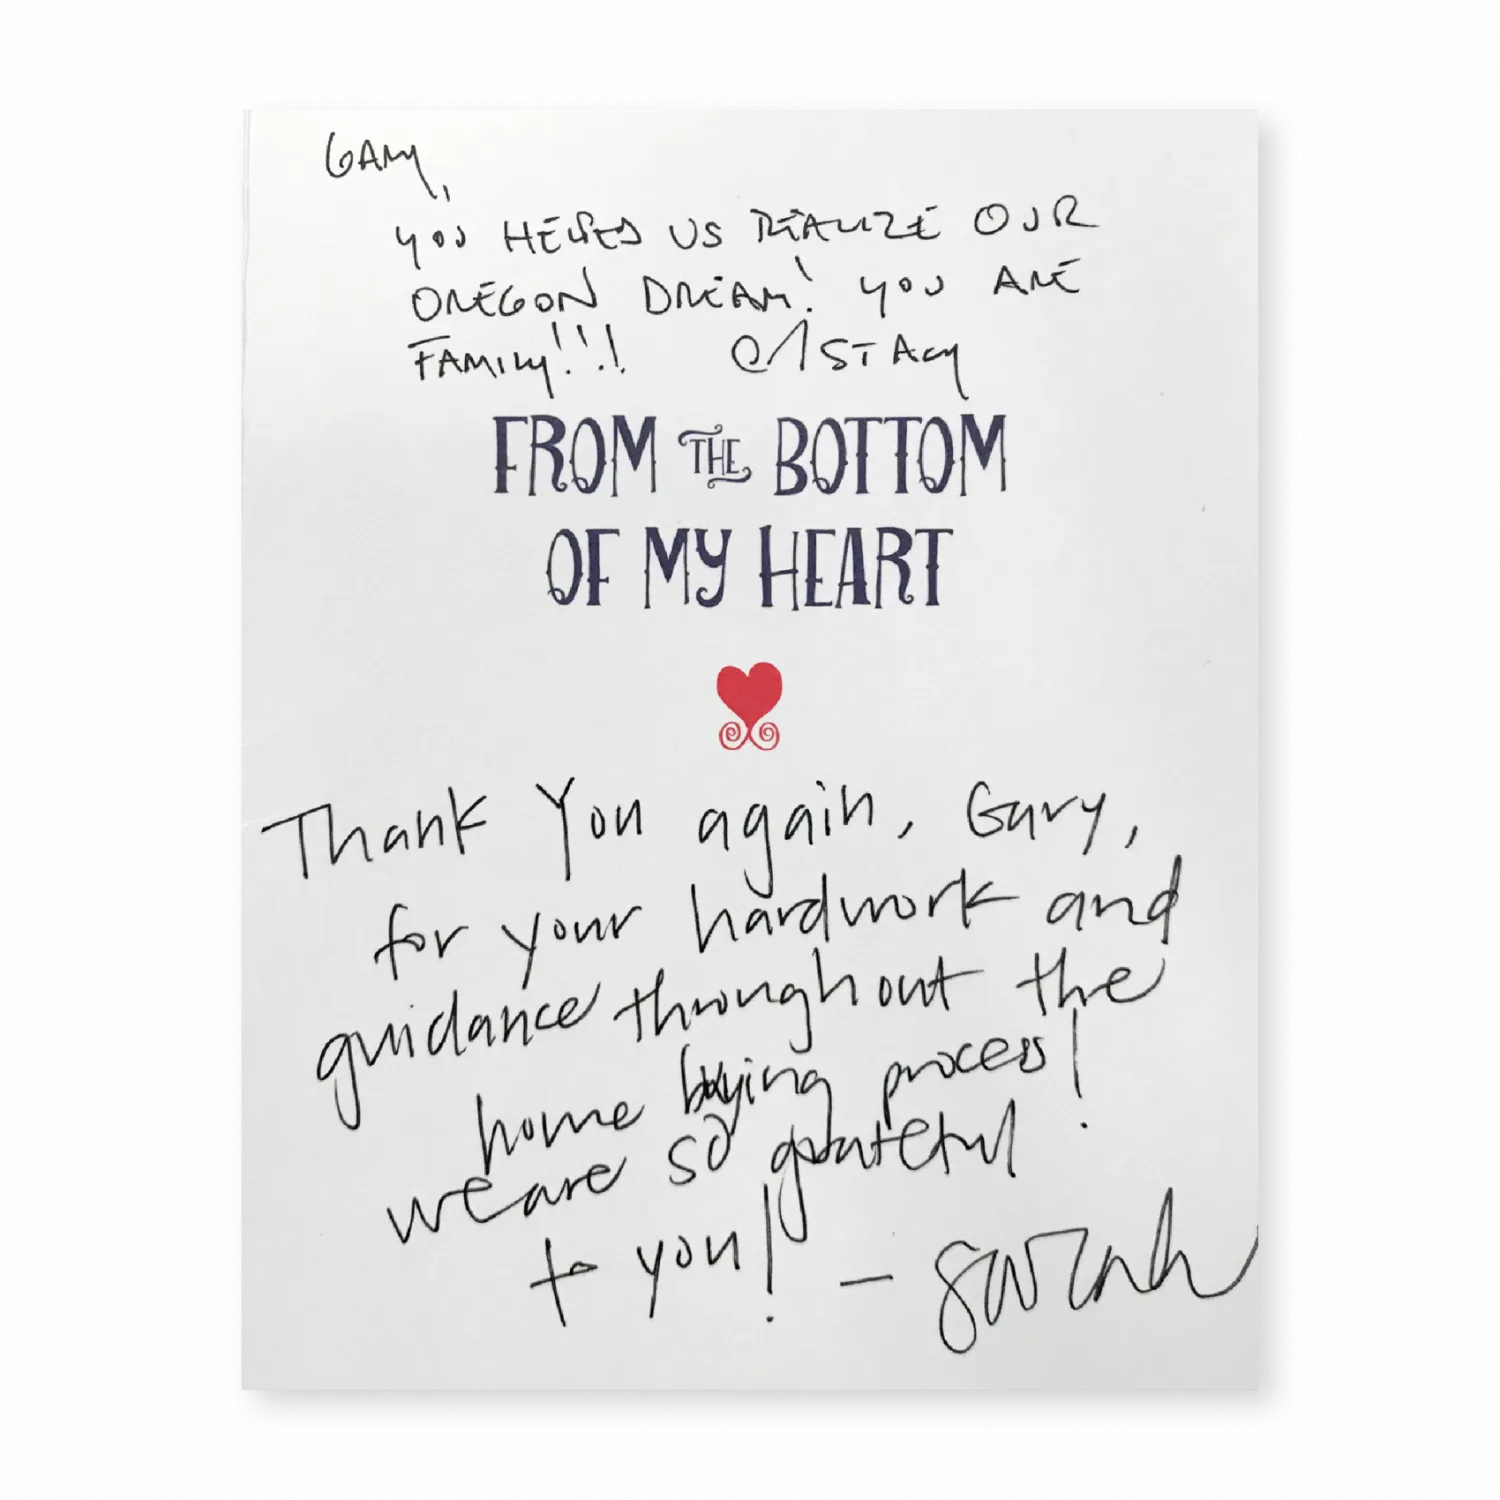 GARY,
YOU HELPED US REALIZE OUR
OREGON DREAM! YOU ARE
FAMILY!!! STACY
FROM THE BOTTOM
OF MY HEART
Thank You again, Gary,
for your hardwork and
guidance throughout the
home buying process!
we are so grateful
to you! - Sarah